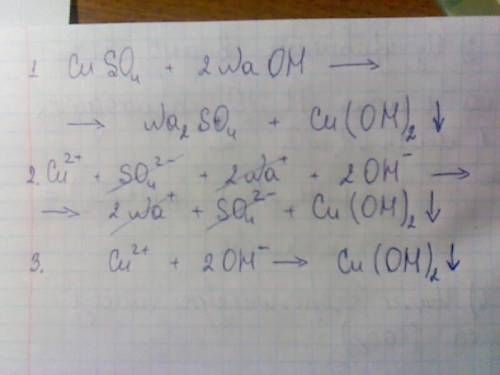 1 CuSO₄ + 2NaOH →
→ Na₂SO₄ + Cu(OH)₂↓
2. Cu²⁺ + SO₄²⁻ + 2Na⁺ + 2OH⁻ →
→ 2Na⁺ + SO₄²⁻ + Cu(OH)₂↓
3. Cu²⁺ + 2OH⁻ → Cu(OH)₂↓